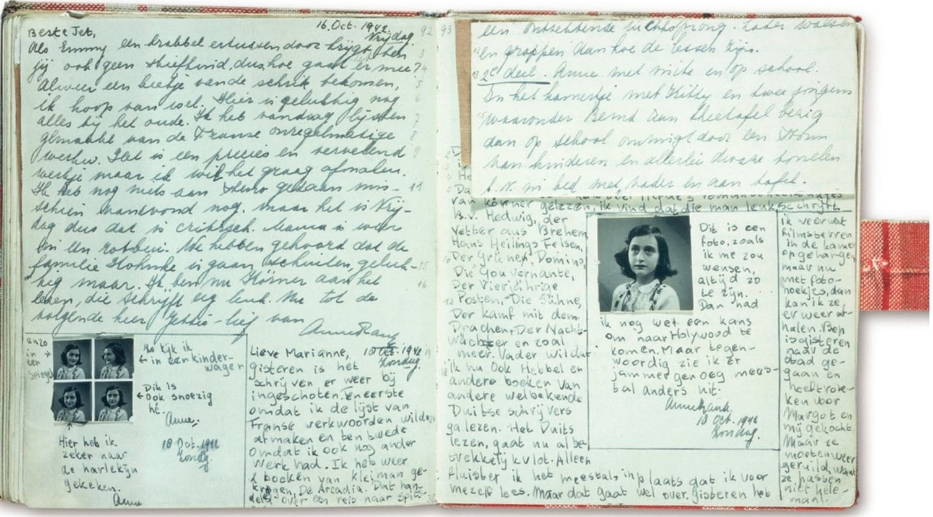 16 Oct. 1942
Vrijdag
Beste Jet,
Als Emmy een krabbel ertussendoor krijgt, ben
jij ook geen stiefkind, dus hoe gaat er mee?
Alweer een beetje van de schrik bekomen,
ik hoop van wel. Hier is gelukkig nog
alles bij het oude. Ik heb vandaag lijsten
gemaakt van de Franse onregelmatige
werkw. Dat is een precies en vervelend
werkje maar ik wil het graag afmaken.
Ik heb nog niets aan steno gedaan mis-
schien vanavond nog, maar het is Vrij-
dag dus dat is critisch. Mama is weer
in een rotbui. We hebben gehoord dat de
familie is gaan schuilen, geluk-
kig maar. Ik ben nu Körner aan het
lezen, die schrijft erg leuk. Nu tot de
volgende keer Jettie-lief van
Anne Frank
enzo
in
een
spiegel
Ho kijk ik
in een kinder-
wagen
Dik is
ook snoezig
hè.
Anne.
18 Oct. 1942
Zondag
Hier heb ik
zeker naar
de harlekijn
gekeken.
Anne
Lieve Marianne,
18 Oct. 1942
Zondag.
gisteren is het
schrijven er weer bij
ingeschoten, eneerste
omdat ik de lijst van
Franse werkwoorden wilde
afmaken en ten twede
omdat ik ook nog ander
werk had. Ik heb weer
2 boeken van kleiman ge-
krogen, De Arcadia. Dat han-
delt over een reis naar Spits-
92
93
en grappen aan hoe de lessen zijn.
2e deel. Anne met mite en op school.
In het kamertje met Kitty en twee jongens
waaronder Bernd aan theetafel bezig
dan op school omringd door een drom
van kinderen en allerlei dwaze tonelen
b.v. in bed met vader en aan tafel.
van Körner gelezen, ik vind dat die man leuk schrijft.
B.v. Hedwig, der
Vetter aus Bremen,
Hans Heilings Felsen,
Der Grüne Domino,
Die Gouvernante,
Der Vierjährige
Posten, Die Sühne,
Der Kampf mit dem
Drachen, Der Nacht-
wächter en zoal
meer. Vader wil dat
ik nu ook Hebbel en
andere boeken van
andere welbekende
Duitse schrijvers
ga lezen. Het Duits
lezen, gaat nu al be-
trekkelijk vlot. Alleen
fluister ik het meestal, in plaats dat ik voor
mezelf lees. Maar dat gaat wel over. gisteren heb
Dit is een
foto, zoals
ik me zou
wensen,
altijd zo
te zijn.
Dan had
ik nog wel een kans
om naar Holywood te
komen. Maar tegen-
woordig zie ik er
jammer genoeg mees-
tal anders uit.
Anne Frank.
18 Oct. 1942
Zondag.
ik veel uit
filmsterren
in de kamer
opgehangen
maar nu
met foto-
hoekjes, dan
kan ik ze
er weer af-
halen. Bep
is gisteren
naar de
stad ge-
gaan en
heeft rok-
ken voor
Margot en
mij gekocht.
Maar ze
moeten weer
geruild, want
ze passen
niet hele-
maal.